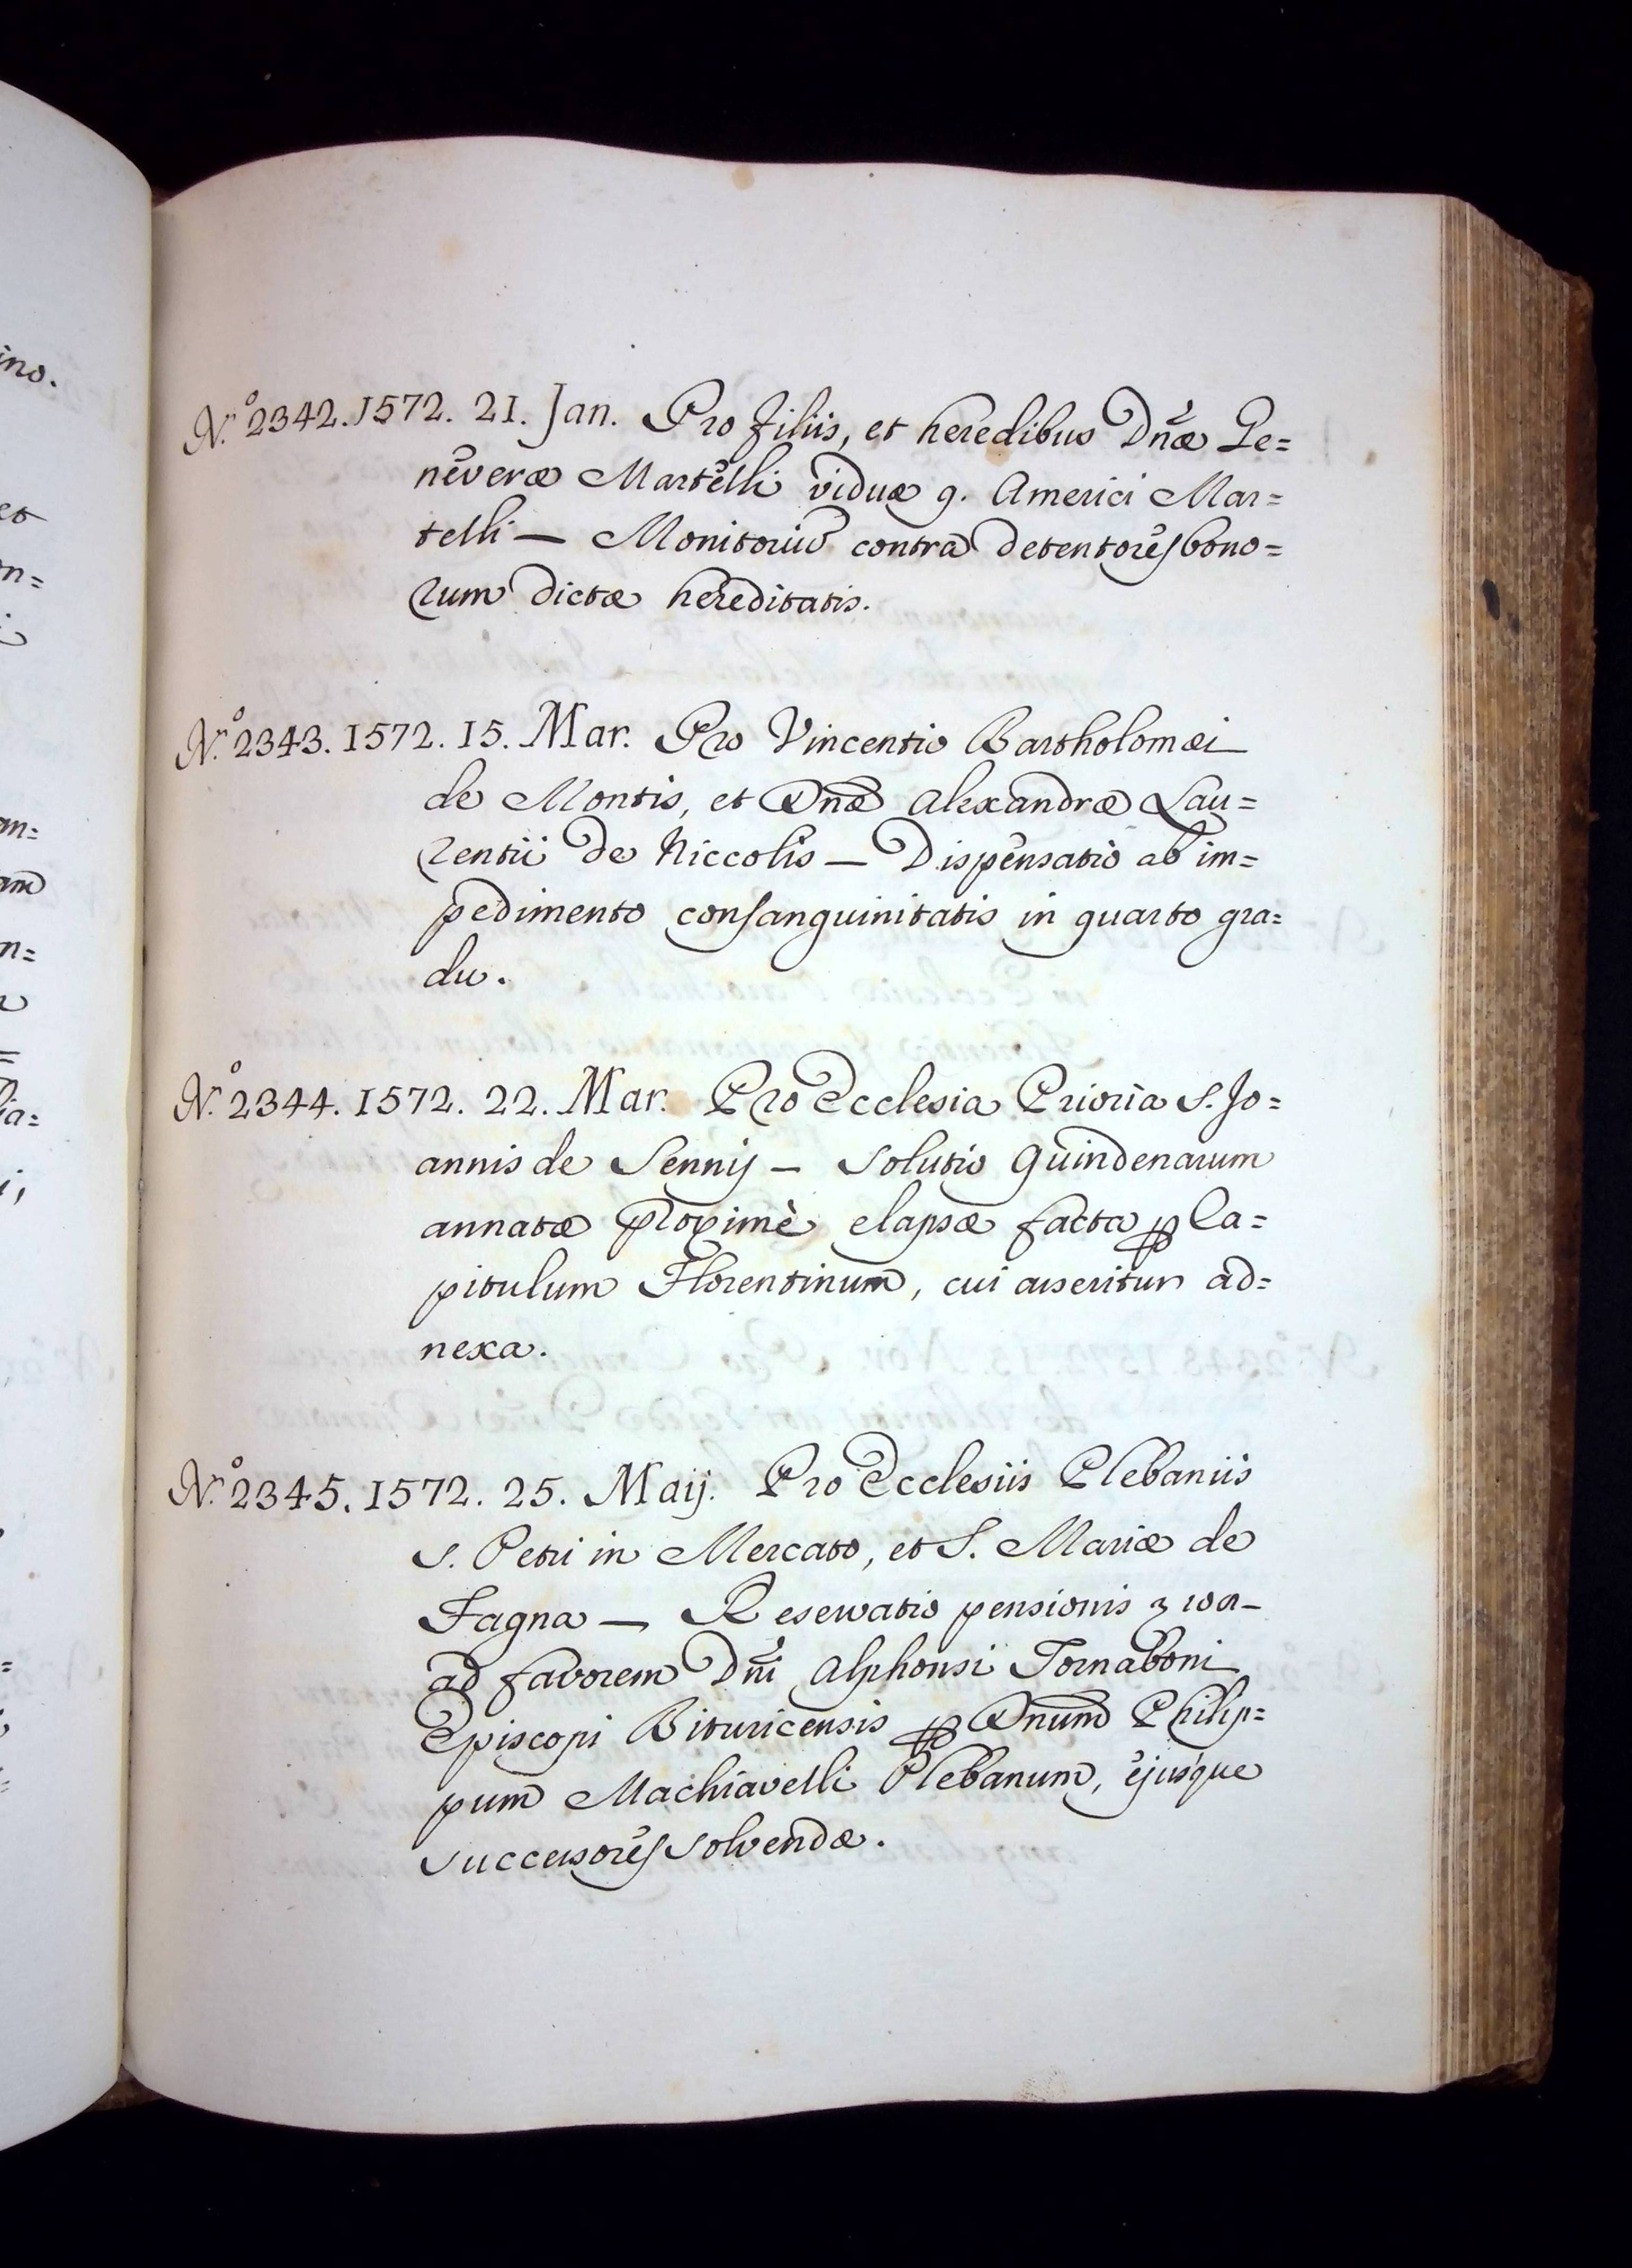 N.º 2342. 1572. 21. Jan. Pro filiis, et heredibus Dnæ Ge=
neveræ Martelli viduæ q. Americi Mar=
telli — Monitoriũ contra detentores bono=
rum dictæ hereditatis.
N.º 2343. 1572. 15. Mar. Pro Vincentio Bartholomæi
de Montis, et Dnæ Alexandræ Lau=
rentii de Niccolis — Dispensatio ab im=
pedimento consanguinitatis in quarto gra=
du.
N.º 2344. 1572. 22. Mar. Pro Ecclesia Prioria S. Jo=
annis de Sennij — Solutio Quindenarum
annatæ proximè elapsæ facta ꝑ Ca=
pitulum Florentinum, cui asseritur ad=
nexa.
N.º 2345. 1572. 25. Maij. Pro Ecclesiis Plebaniis
S. Petri in Mercato, et S. Mariæ de
Fagna — Reservatio pensionis
ad favorem Dñi Alphonsi Tornaboni
Episcopi Bituricensis ꝑ Dnum Philip=
pum Machiavelli Plebanum, ejusque
successores solvendæ.
ino.
et
n=
an=
am
n=
=
ia=
i,